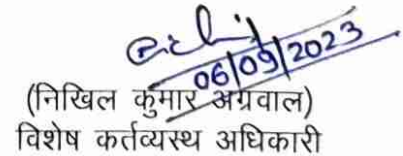 06/09/2023
(निखिल कुमार अग्रवाल)
विशेष कर्तव्यस्थ अधिकारी